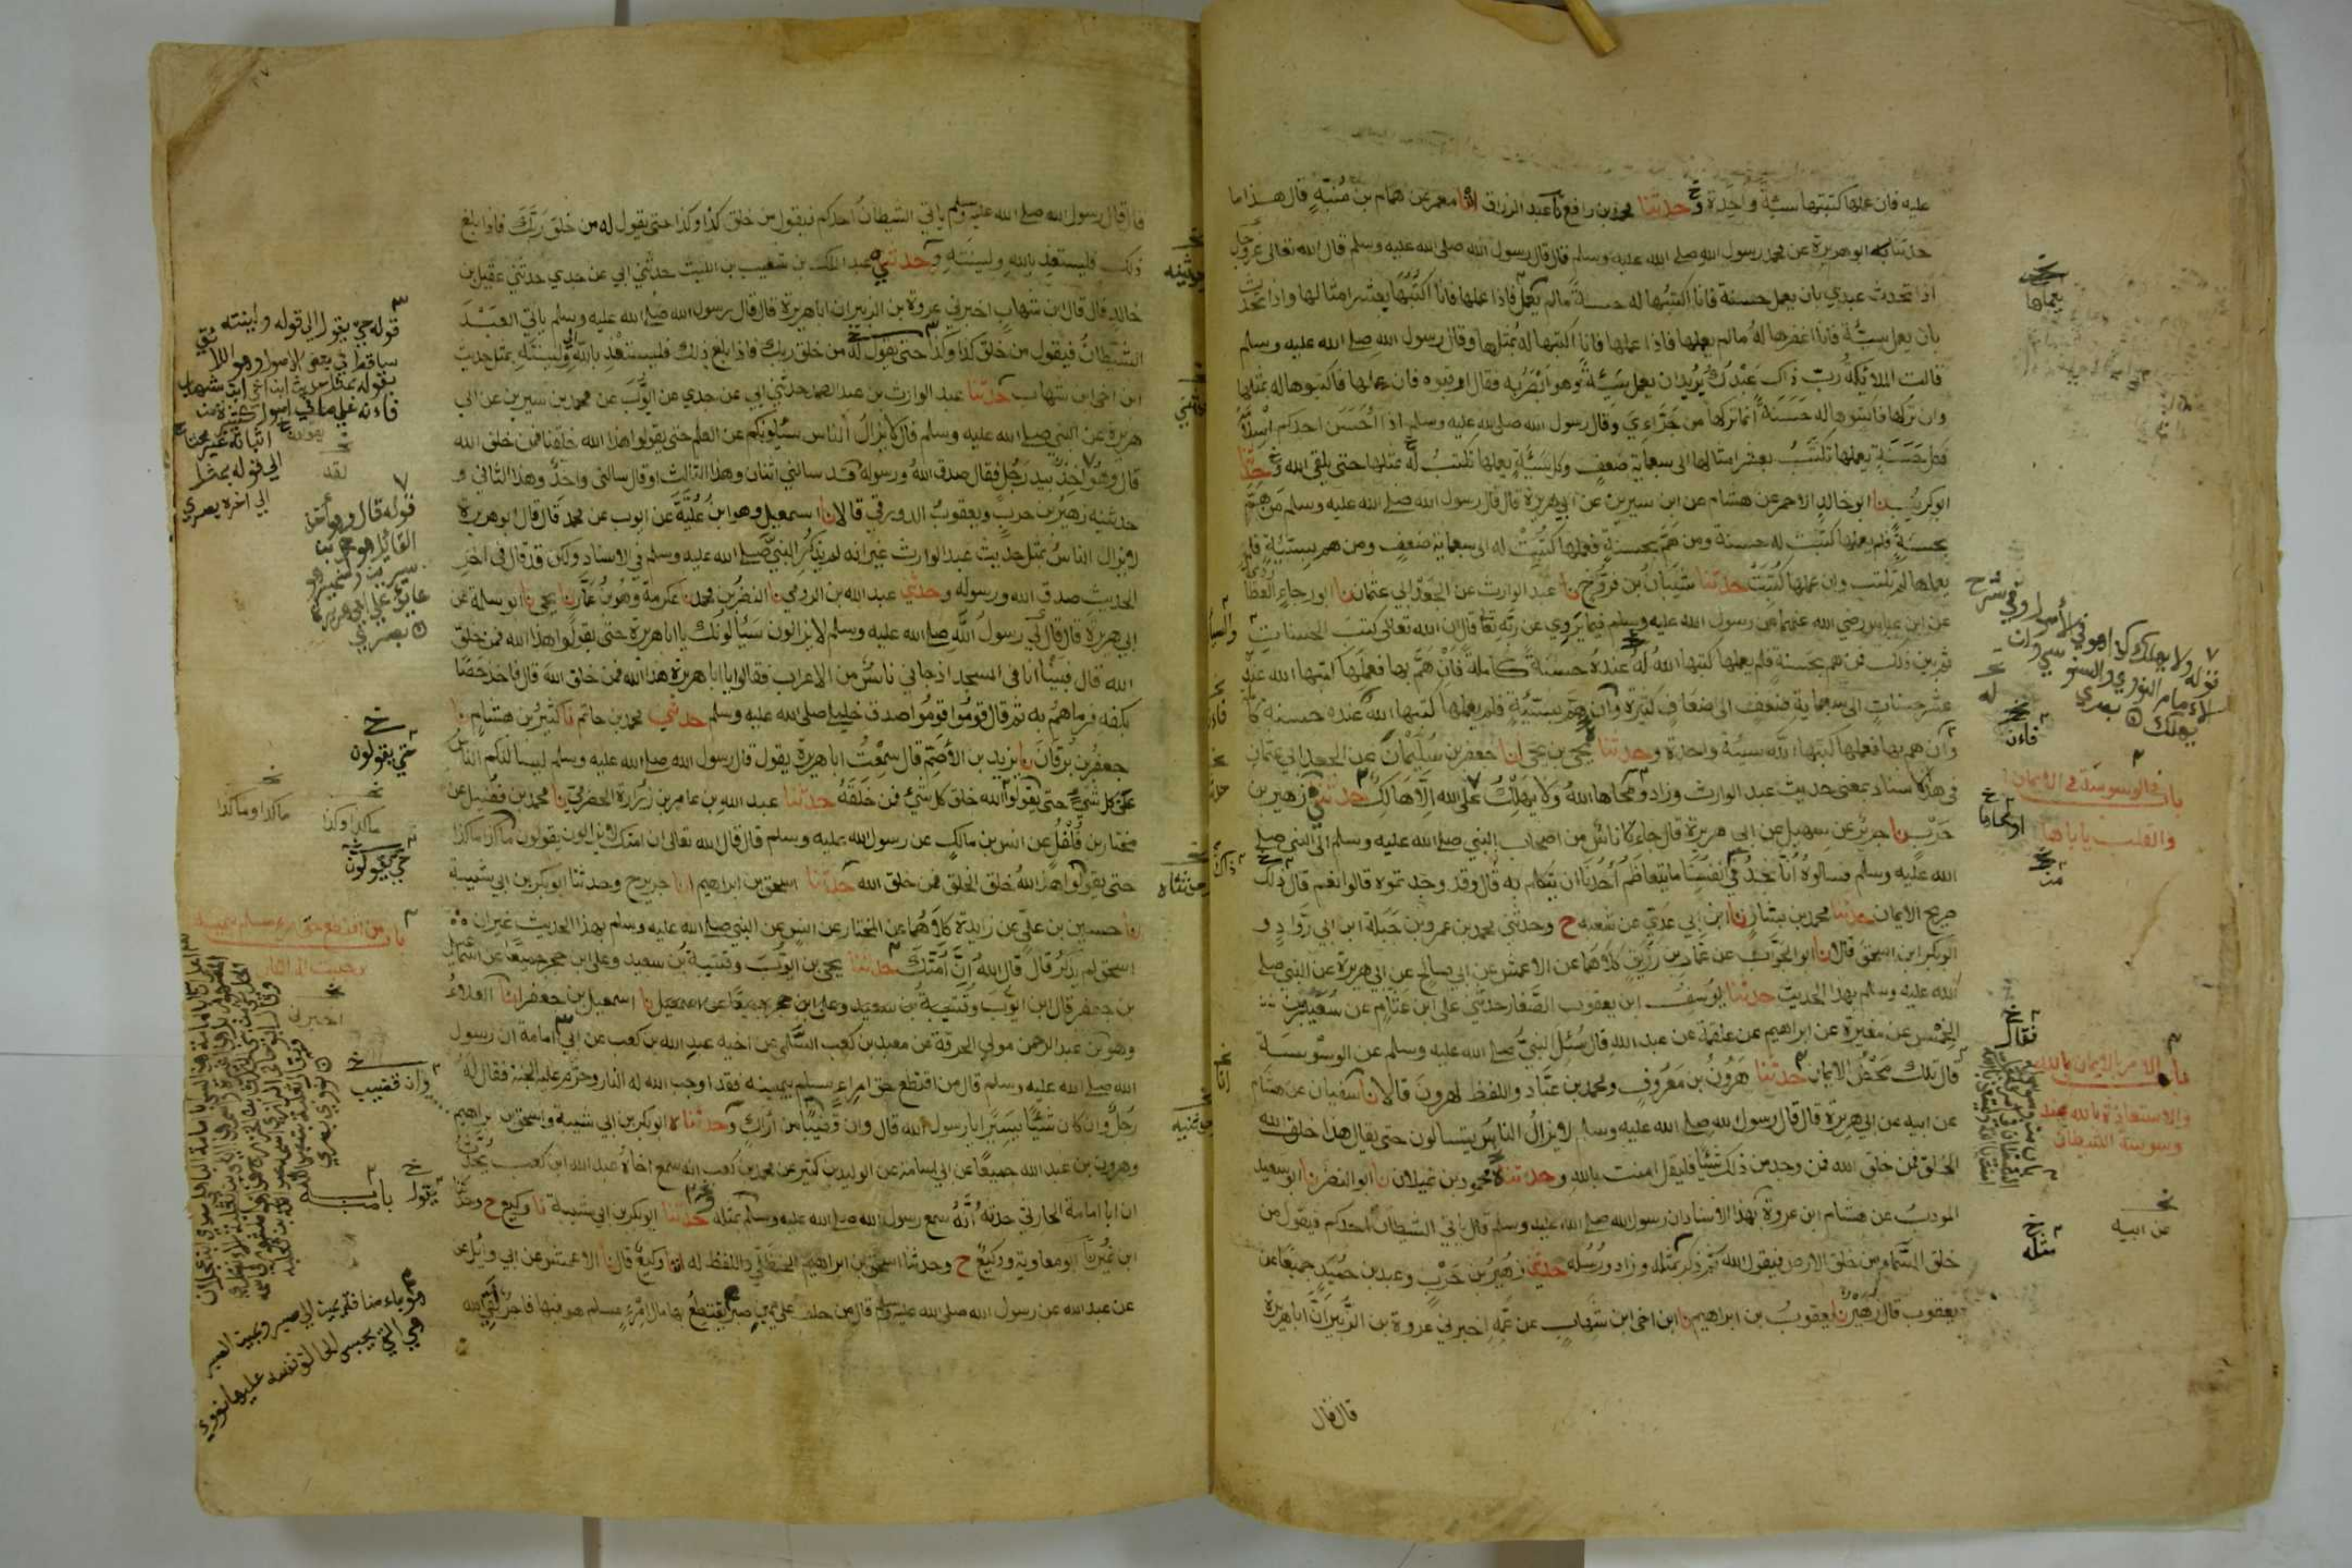 عليه فان عملها كتبتها سيئة واحدة و حدثنا محمد بن رافع نا عبد الرزاق انا معمر عن همام بن منبه قال هذا ما
حدثنا به ابو هريرة عن محمد رسول الله صلى الله عليه وسلم قال قال رسول الله صلى الله عليه وسلم قال الله تعالى عز وجل
اذا تحدث عبدي بان يعمل حسنة فانا اكتبها له حسنة ما لم يعمل فاذا عملها فانا اكتبها بعشر امثالها واذا تحدث
بان يعمل سيئة فانا اغفرها له ما لم يعملها فاذا عملها فانا اكتبها له بمثلها وقال رسول الله صلى الله عليه وسلم
قالت الملائكة رب ذاك عبدك يريد ان يعمل سيئة وهو ابصر به فقال ارقبوه فان عملها فاكتبوها له بمثلها
وان تركها فاكتبوها له حسنة انما تركها من جراءي وقال رسول الله صلى الله عليه وسلم اذا احسن احدكم اسلامه
فكل حسنة يعملها تكتب بعشر امثالها الى سبعماية ضعف وكل سيئة يعملها تكتب له بمثلها حتى يلقى الله و حدثنا
ابو كريب نا ابو خالد الاحمر عن هشام عن ابن سيرين عن ابي هريرة قال قال رسول الله صلى الله عليه وسلم من هم
بحسنة فلم يعملها كتبت له حسنة ومن هم بحسنة فعملها كتبت له الى سبعماية ضعف ومن هم بسيئة فلم
يعملها لم تكتب وان عملها كتبت حدثنا شيبان بن فروخ نا عبد الوارث عن الجعد ابي عثمان نا ابو رجاء العطاردي
عن ابن عباس رضي الله عنهما عن رسول الله عليه وسلم فيما يروي عن ربه تعا قال ان الله تعالى كتب الحسنات
ثم بين ذلك فمن هم بحسنة فلم يعملها كتبها الله له عنده حسنة كاملة فان هم بها فعملها كتبها الله عنده
عشر حسنات الى سبعماية ضعف الى اضعاف كثيرة وان هم بسيئة فلم يعملها كتبها الله عنده حسنة كا
وان هم بها فعملها كتبها الله سيئة واحدة و حدثنا يحيى بن يحيى انا جعفر بن سليمان عن الجعد ابي عثمان
في هذا الاسناد بمعنى حديث عبد الوارث وزاد ومحاها الله ولا يهلك على الله الا هالك حدثني زهير بن
حرب نا جرير عن سهيل عن ابيه عن ابي هريرة قال جاء ناس من اصحاب النبي صلى الله عليه وسلم الى النبي صلى
الله عليه وسلم فسالوه انا نجد في انفسنا ما يتعاظم احدنا ان يتكلم به قال وقد وجدتموه قالوا نعم قال ذلك
صريح الايمان حدثنا محمد بن بشار نا ابن ابي عدي عن شعبة ح وحدثني محمد بن عمرو بن جبلة ابن ابي رواد و
ابو بكر ابن اسحق قالا نا ابو الجواب عن عمار بن رزيق كلاهما عن الاعمش عن ابي صالح عن ابي هريرة عن النبي صلى
الله عليه وسلم بهذا الحديث حدثنا يوسف ابن يعقوب الصفار حدثني علي ابن عثام عن سعير بن
الخمس عن مغيرة عن ابراهيم عن علقمة عن عبد الله قال سئل النبي صلى الله عليه وسلم عن الوسوسة
قال تلك محض الايمان حدثنا هرون بن معروف ومحمد بن عباد واللفظ لهرون قالا نا سفيان عن هشام
عن ابيه عن ابي هريرة قال قال رسول الله صلى الله عليه وسلم لا يزال الناس يتسالون حتى يقال هذا خلق الله
الخلق فمن خلق الله فمن وجد من ذلك شيئا فليقل امنت بالله و حدثنا محمود بن غيلان نا ابو النضر نا ابو سعيد
المودب عن هشام ابن عروة بهذا الاسناد ان رسول الله صلى الله عليه وسلم قال ياتي الشيطان احدكم فيقول من
خلق السماء من خلق الارض فيقول الله ثم ذكر بمثله وزاد ورسله حدثني زهير بن حرب وعبد بن حميد جميعا عن
يعقوب قال زهير نا يعقوب بن ابراهيم نا ابن اخي ابن شهاب عن عمه اخبرني عروة بن الزبير ان ابا هريرة
قال قال
يعملها
قوله ولا يهلك كذا هو في الأصول وفي شرح
الامام النووي والسنوسي وان
يهلك بصري
فان
باب في الوسوسة في الايمان
او محاها
فقال
باب الامر بالايمان بالله
والاستعاذة بالله عند
وسوسة الشيطان
عن ابيه
مثله
قال قال رسول الله صلى الله عليه وسلم ياتي الشيطان احدكم فيقول من خلق كذا وكذا حتى يقول له من خلق ربك فاذا بلغ
ذلك فليستعذ بالله ولينته و حدثني عبد الملك بن شعيب بن الليث حدثني ابي عن جدي حدثني عقيل بن
خالد قال قال ابن شهاب اخبرني عروة بن الزبير ان ابا هريرة قال قال رسول الله صلى الله عليه وسلم ياتي العبد
الشيطان فيقول من خلق كذا وكذا حتى يقول له من خلق ربك فاذا بلغ ذلك فليستعذ بالله ولينته بمثل حديث
ابن اخي ابن شهاب حدثنا عبد الوارث بن عبد الصمد حدثني ابي عن جدي عن ايوب عن محمد بن سيرين عن ابي
هريرة عن النبي صلى الله عليه وسلم قال لا يزال الناس يسئلونكم عن العلم حتى يقولوا هذا الله خلقنا فمن خلق الله
قال وهو اخذ بيد رجل فقال صدق الله ورسوله قد سالني اثنان وهذا الثالث او قال سالني واحد وهذا الثاني و
حدثنيه زهير بن حرب ويعقوب الدورقي قالا نا اسمعيل وهو ابن علية عن ايوب عن محمد قال قال ابو هريرة
لا يزال الناس بمثل حديث عبد الوارث غير انه لم يذكر النبي صلى الله عليه وسلم في الاسناد ولكن قد قال في اخر
الحديث صدق الله ورسوله وحدثني عبد الله بن الرومي نا النضر بن محمد نا عكرمة وهو بن عمار نا يحيى نا ابو سلمة عن
ابي هريرة قال قال لي رسول الله صلى الله عليه وسلم لا يزالون يسألونك يا ابا هريرة حتى يقولوا هذا الله فمن خلق
الله قال فبينا انا في المسجد اذ جاني ناس من الاعراب فقالوا يا ابا هريرة هذا الله فمن خلق الله قال فاخذ حصا
بكفه فرماهم به ثم قال قوموا قوموا صدق خليلي صلى الله عليه وسلم حدثني محمد بن حاتم نا كثير بن هشام نا
جعفر بن برقان نا يزيد بن الأصم قال سمعت ابا هريرة يقول قال رسول الله صلى الله عليه وسلم ليسالنكم الناس
عن كل شيء حتى يقولوا الله خلق كل شيء فمن خلقه حدثنا عبد الله بن عامر بن زرارة الحضرمي نا محمد بن فضيل عن
مختار بن فلفل عن انس بن مالك عن رسول الله عليه وسلم قال قال الله تعالى ان امتك لا يزالون يقولون ما كذا ما كذا
حتى يقولوا هذا الله خلق الخلق فمن خلق الله حدثنا اسحق بن ابراهيم انا جرير ح وحدثنا ابو بكر بن ابي شيبة
نا حسين بن علي عن زايدة كلاهما عن المختار عن انس عن النبي صلى الله عليه وسلم بهذا الحديث غير ان
اسحق لم يذكر قال قال الله ان امتك حدثنا يحيى بن ايوب وقتيبة بن سعيد وعلي ابن حجر جميعا عن اسماعيل
بن جعفر قال ابن ايوب وقتيبة بن سعيد وعلي ابن حجر جميعا عن اسمعيل نا اسمعيل بن جعفر انا العلاء
وهو بن عبد الرحمن مولى الحرقة عن معبد بن كعب السلمي عن اخيه عبد الله بن كعب عن ابي امامة ان رسول
الله صلى الله عليه وسلم قال من اقتطع حق امرئ مسلم بيمينه فقد اوجب الله له النار وحرم عليه الجنة فقال له
رجل وان كان شيئا يسيرا يا رسول الله قال وان قضيبا من اراك و حدثنا ابو بكر بن ابي شيبة واسحق بن ابراهيم
وهرون بن عبد الله جميعا عن ابي اسامة عن الوليد بن كثير عن محمد بن كعب انه سمع اخاه عبد الله ابن كعب يحدث
ان ابا امامة الحارثي حدثه انه سمع رسول الله صلى الله عليه وسلم بمثله و حدثنا ابو بكر بن ابي شيبة نا وكيع ح وحدثنا
ابن نمير نا ابو معاوية ووكيع ح وحدثنا اسحق بن ابراهيم الحنظلي واللفظ له انا وكيع قال نا الاعمش عن ابي وائل عن
عن عبد الله عن رسول الله صلى الله عليه وسلم قال من حلف على يمين صبر يقتطع بها مال امرئ مسلم هو فيها فاجر لقي الله
قوله حتى يقول الى قوله ولينته
ساقط في بعض الاصول وهو اللائق
بقوله بمثل حديث ابن اخي ابن شهاب
الى قوله بمثل
الى اخره بصري
قوله قال وهو آخذ
القائل هو محمد بن
سيرين وضمير هو
عايد على ابي هريرة
بصري
حتى يقولون
ما كذا وكذا
ما كذا وما كذا
حتى يقولون
باب من اقتطع حق امرئ مسلم بيمينه
اخبرني
وان قضيب
يقول
باب